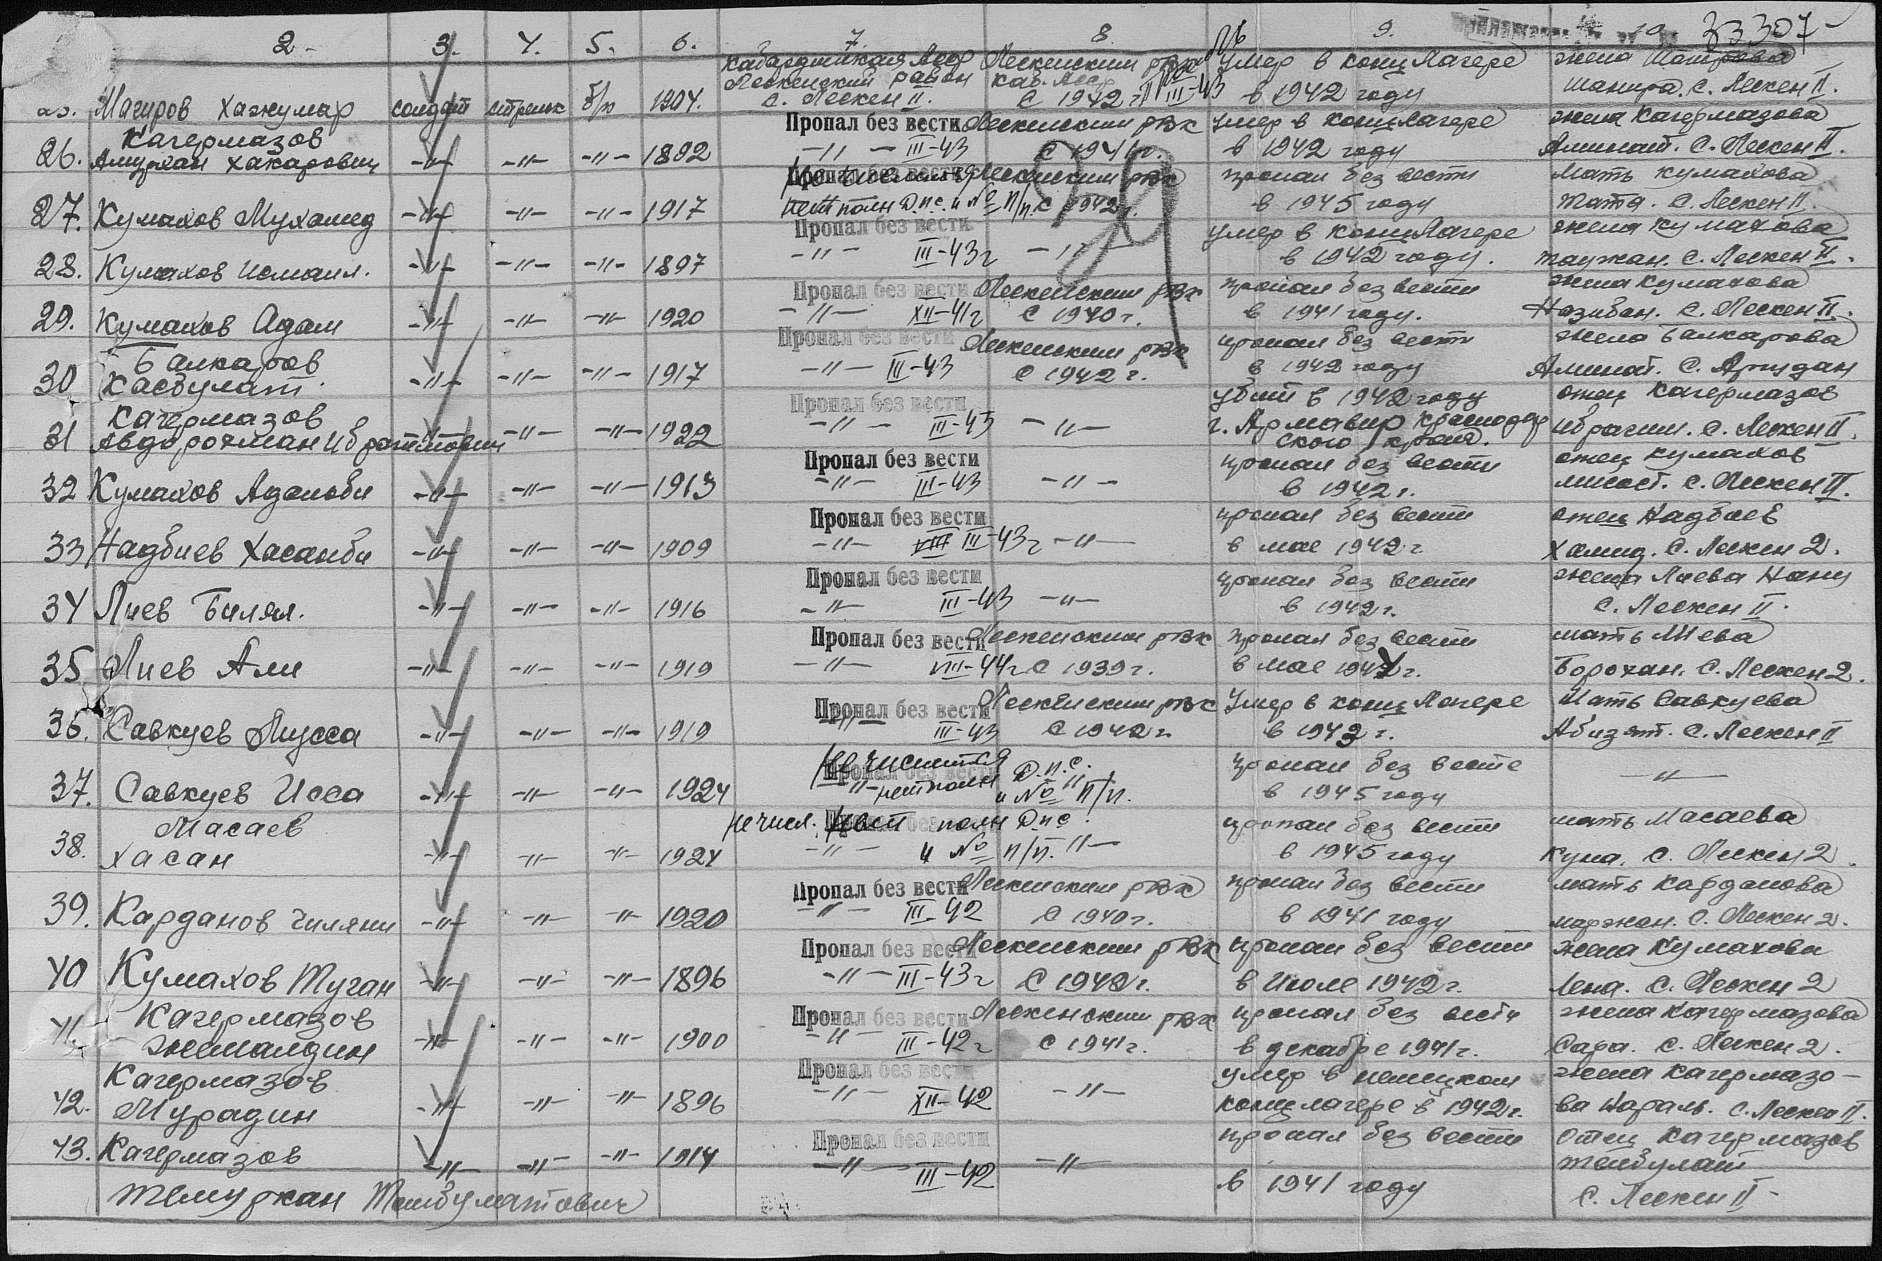 2. 3. 4. 5. 6. 7. 8. 9. 10. 33307
25. Магиров Хажумар солдат стрелок б/п 1904. Кабардинская Асср Лескенский район с. Лескен II. Лескенским рвк Каб. Асср с 1942 г. III-43 умер в концлагере в 1942 году жена Шанира. с. Лескен II.
26. Кагермазов Амурхан Хакарович -"- -"- -"- 1892 Пропал без вести -"- III-43 Лескенским рвк с 1941 г. умер в концлагере в 1942 году жена Кагермазова Аминат. с. Лескен II.
27. Кумахов Мухамед -"- -"- -"- 1917 Пропал без вести нет полн Д.п.с. и № п/п. Лескенским рвк с 1942 г. пропал без вести в 1945 году мать Кумахова с. Лескен II.
28. Кумахов Исмаил. -"- -"- -"- 1897 Пропал без вести -"- III-43 г -"- умер в концлагере в 1942 году. жена Кумахова Таужан. с. Лескен II.
29. Кумахов Адам -"- -"- -"- 1920 Пропал без вести -"- XII-41 г Лескенским рвк с 1940 г. пропал без вести в 1941 году. жена Кумахова Назибан. с. Лескен II.
30 Балкаров Хасбулат. -"- -"- -"- 1917 Пропал без вести -"- III-43 Лескенским рвк с 1942 г. пропал без вести в 1942 году жена Балкарова Аминат. с. Аргудан
31 Кагермазов Абдорохман Ибрагимович -"- -"- 1922 Пропал без вести -"- III-43 -"- убит в 1942 году г. Армавир Краснодарского края. отец Кагермазов Ибрагим. с. Лескен II.
32 Кумахов Адальби -"- -"- -"- 1913 Пропал без вести -"- III-43 -"- пропал без вести в 1942 г. отец Кумахов Мисост. с. Лескен II.
33 Надбиев Хасанби -"- -"- -"- 1909 Пропал без вести -"- VIII III-43 г -"- пропал без вести в мае 1942 г отец Надбиев Хамид. с. Лескен 2.
34 Лиев Билял. -"- -"- -"- 1916 Пропал без вести -"- III-43 -"- пропал без вести в 1942 г. жена Лиева Нану с. Лескен II.
35 Лиев Али -"- -"- -"- 1919 Пропал без вести -"- VIII-44 г Лескенским рвк с 1939 г. пропал без вести в мае 1944 г. мать Лиева Борохан. с. Лескен 2.
36. Савкуев Мусса -"- -"- -"- 1919 Пропал без вести -"- III-43 Лескенским рвк с 1942 г. умер в концлагере в 1943 г. мать Савкуева Абизят. с. Лескен II
37. Савкуев Исса -"- -"- -"- 1924 Пропал без вести не числится нет полн Д.п.с. и № п/п. пропал без вести в 1945 году -"-
38. Масаев Хасан -"- -"- -"- 1924 не числ. нет полн Дпс и № п/п. -"- пропал без вести в 1945 году мать Масаева Куна. с. Лескен 2.
39. Карданов Чиляни -"- -"- -"- 1920 Пропал без вести -"- III-42 Лескенским рвк с 1940 г. пропал без вести в 1941 году мать Карданова Маржан. с. Лескен 2.
40 Кумахов Туган -"- -"- -"- 1896 Пропал без вести -"- III-43 г Лескенским рвк с 1942 г. пропал без вести в Июле 1942 г. жена Кумахова Лена. с. Лескен 2
41. Кагермазов Жемалдин -"- -"- -"- 1900 Пропал без вести -"- III-42 г Лескенским рвк с 1941 г. пропал без вести в декабре 1941 г. жена Кагермазова Сара. с. Лескен 2.
42. Кагермазов Мурадин -"- -"- -"- 1896 Пропал без вести -"- XII-42 -"- умер в немецком концлагере в 1942 г. жена Кагермазова с. Лескен II.
43. Кагермазов Темуркан Темболатович -"- -"- -"- 1914 Пропал без вести -"- III-42 -"- пропал без вести в 1941 году отец Кагермазов Тембулат с. Лескен II